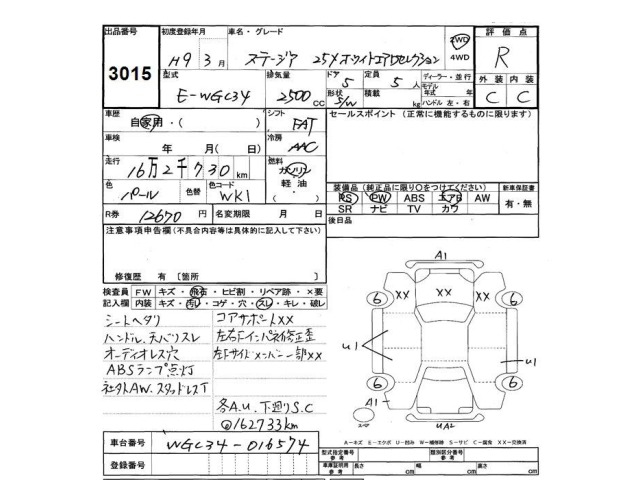 出品番号
3015
初度登録年月
H9年3月
車名・グレード
ステージア 25X ホワイトエアロセレクション
2WD
4WD
評価点
R
型式
E-WGC34
排気量
2500 CC
ドア 5
形状 S/W
定員 5人
積載 kg
ディーラー・並行
モデル年式 年
ハンドル 左・右
外装 内装
C C
車歴
自家用・( )
シフト
FAT
セールスポイント(正常に機能するものに限ります)
車検
年 月( 日)
冷房
AAC
走行
16万2千730km
燃料
ガソリン
軽油・
( )
色
パール
色替
色コード
WK1
装備品(純正品に限り○をつけてください)
PS PW ABS エアB AW
SR ナビ TV カワ
新車保証書
有・無
R券
12670円
名変期限
月 日
後日品
注意事項申告欄(不具合内容等は具体的に記入して下さい)
修復歴 有〔箇所 〕
検査員 FW キズ・飛石・ヒビ割・リペア跡・×要
記入欄 内装 キズ・汚レ・コゲ・穴・スレ・キレ・破レ
シートヘタリ
ハンドル、天バリスレ
オーディオレス穴
ABSランプ点灯
社外AW、スタッドレスT
コアサポートXX
左右Fインパネ修正歪
左Fサイドメンバー一部XX
各A.U. 下廻りS.C
@162733km
A1
XX XX XX
6 6
U1 U1
6 6
A1
UA2
A-キズ E-エクボ U-凹み W-補修跡 S-サビ C-腐食 XX-交換済
車台番号
WGC34-016574
登録番号
型式指定番号
参考
類別区分番号
参考
車庫証明用
参考
長さ cm 幅 cm 高さ cm